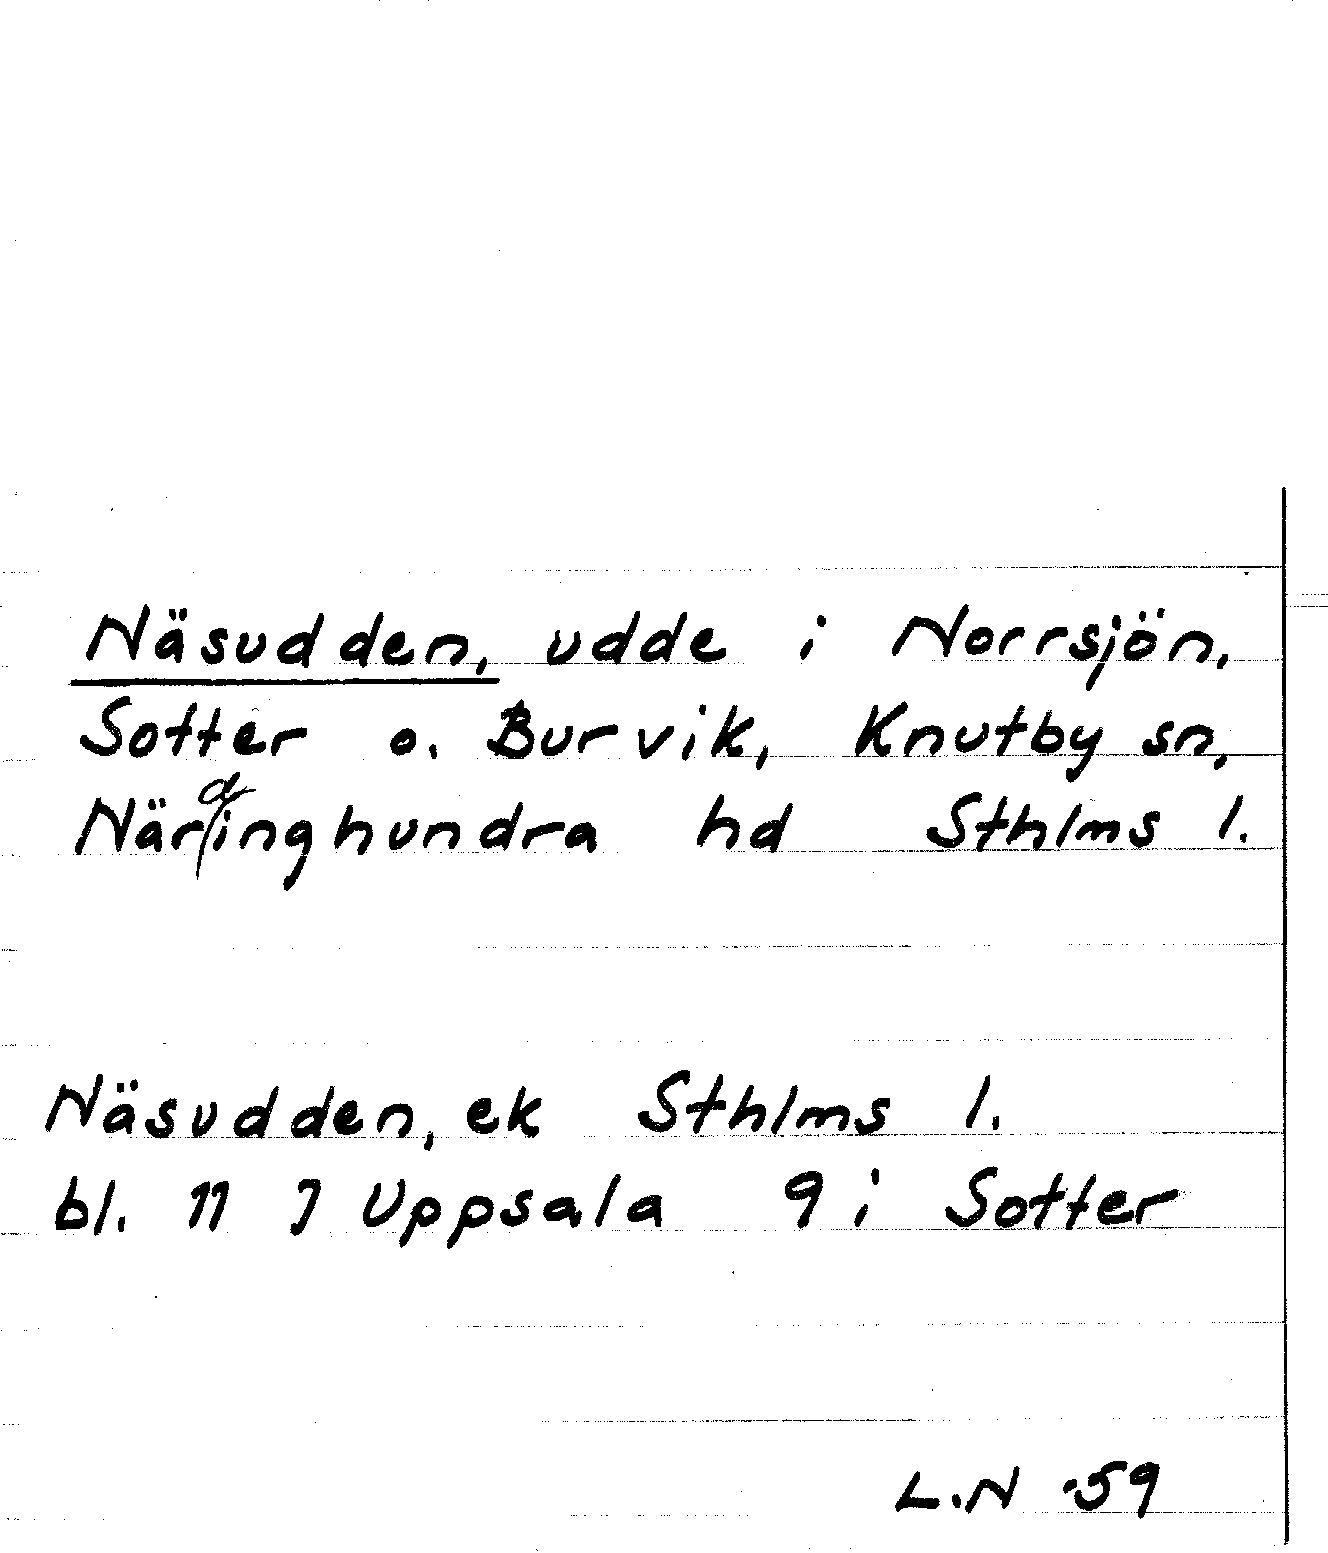 Näsudden, udde i Norrsjön,
Sotter o. Burvik, Knutby sn,
Närdinghundra hd Sthlms l.
Näsudden, ek Sthlms l.
bl. 11 J Uppsala 9 i Sotter
L.N -59